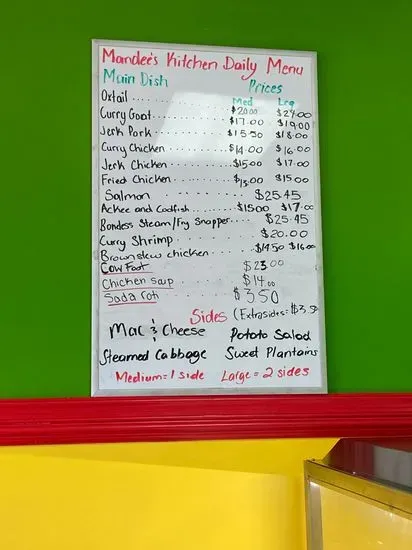 Mandee's Kitchen Daily Menu
Main Dish Prices
Med Lrg
Oxtail ........ $20.00 $24.00
Curry Goat ........ $17.00 $19.00
Jerk Pork ........ $15.50 $18.00
Curry Chicken ........ $14.00 $16.00
Jerk Chicken ........ $15.00 $17.00
Fried Chicken ........ $13.00 $15.00
Salmon $25.45
Ackee and Codfish ........ $15.00 $17.00
Boneless Steam/Fry Snapper.... $25.45
Curry Shrimp ........ $20.00
Brown stew chicken ........ $14.50 $16.00
Cow Foot $23.00
Chicken Soup $14.00
Soda roti $3.50
Sides (Extra sides: $3.50
Mac & Cheese Potato Salad
Steamed Cabbage Sweet Plantains
Medium = 1 side Large = 2 sides